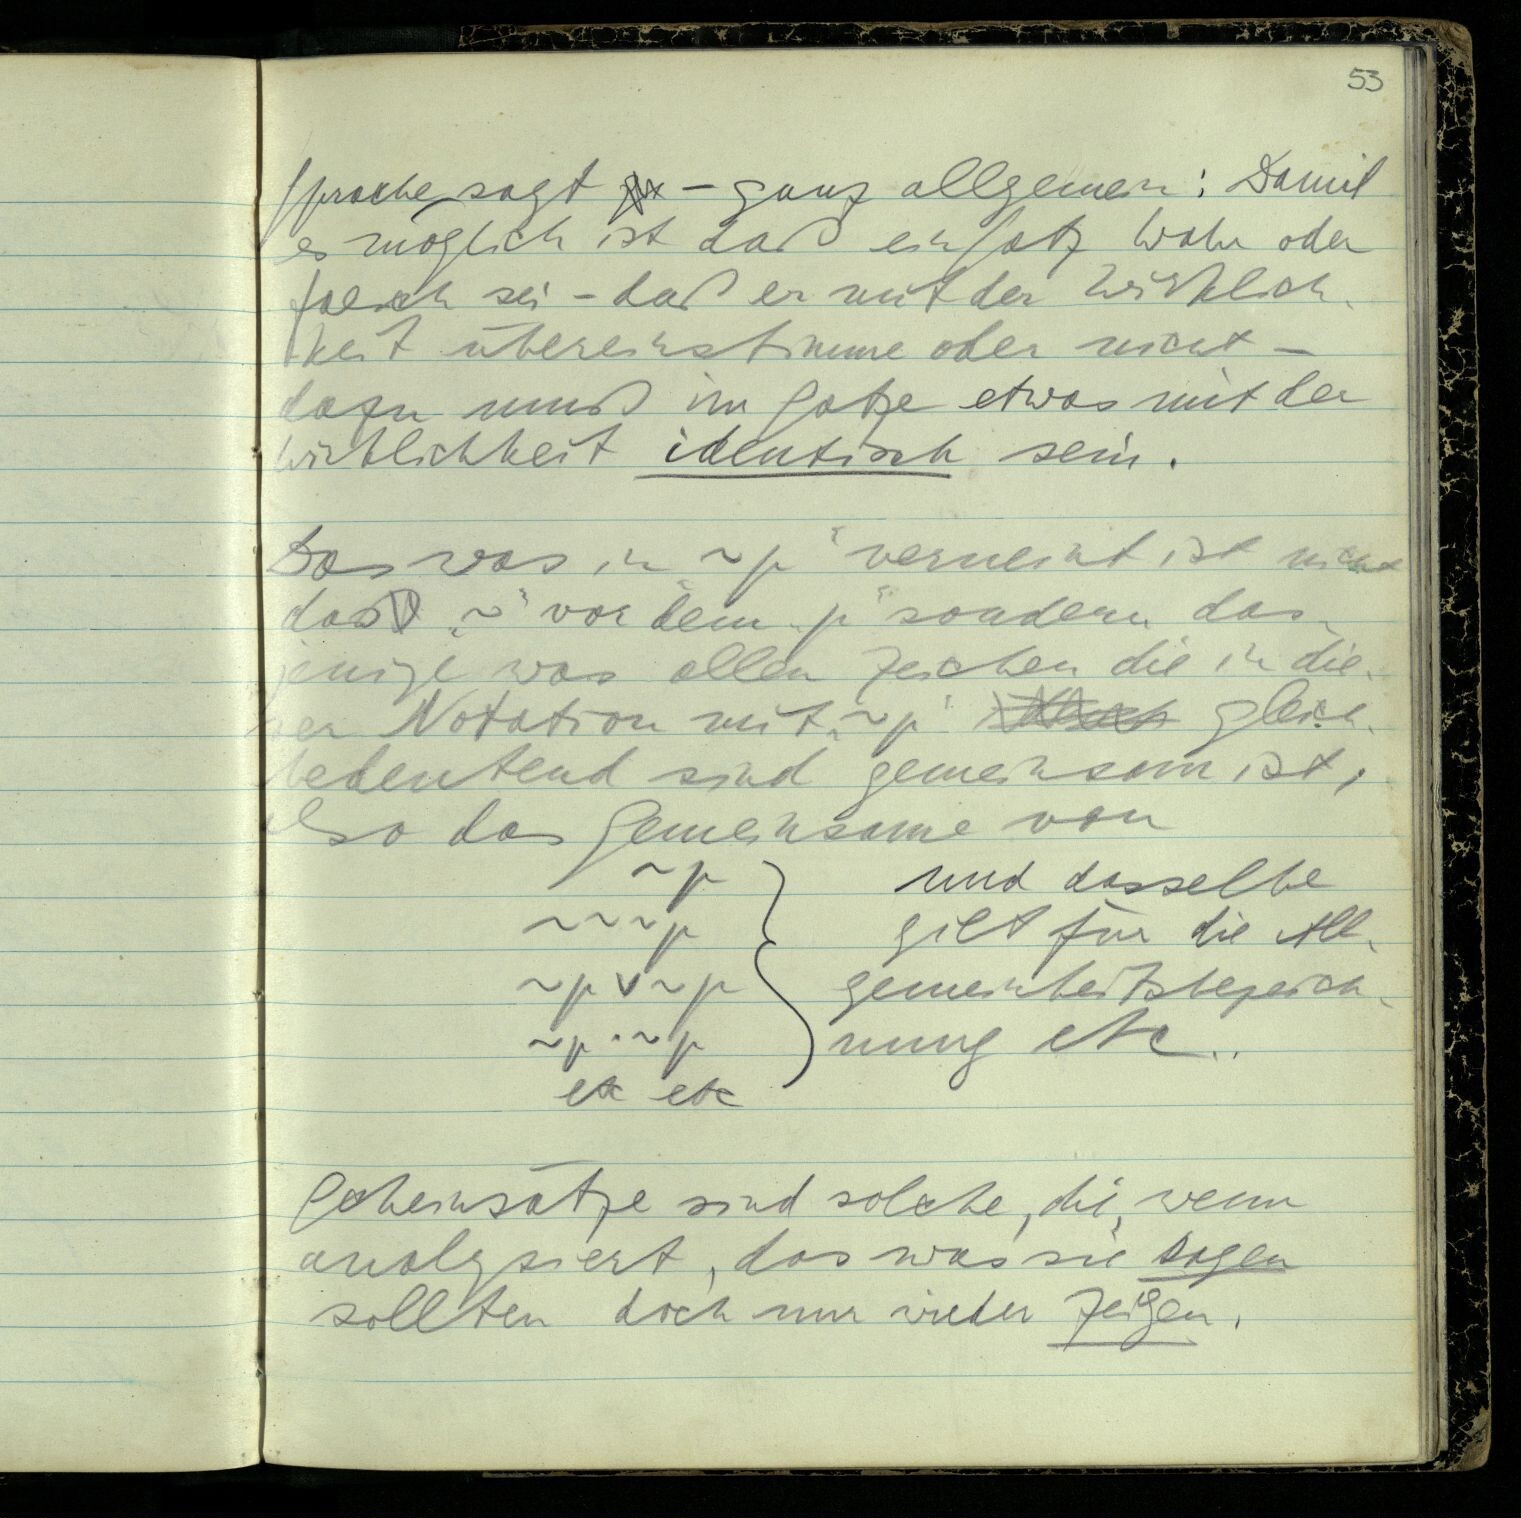 53
Sprache sagt – ganz allgemein: Damit
es möglich ist daß ein Satz wahr oder
falsch sei – daß er mit der Wirklich-
keit übereinstimme oder nicht –
dazu muß im Satze etwas mit der
Wirklichkeit identisch sein.
Das was in „~p“ verneint ist nicht
das „~“ vor dem „p“ sondern das-
jenige was allen Zeichen die in die-
ser Notation mit „~p“ gleich-
bedeutend sind gemeinsam ist,
also das Gemeinsame von
~p
~~~p
~p v ~p
~p . ~p
etc etc
und dasselbe
gilt für die All-
gemeinheitsbezeich-
nung etc..
Scheinsätze sind solche, die, wenn
analysiert, das was sie sagen
sollten doch nur wieder zeigen.